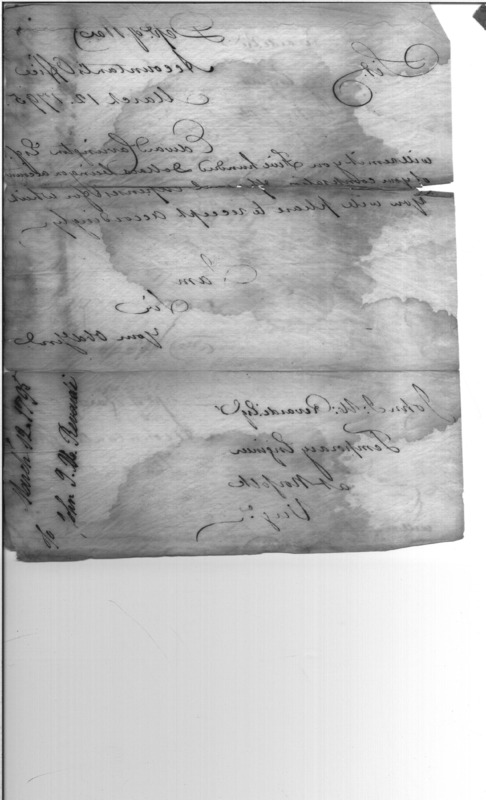 Dep.t of War
Accountant's Office
March 12. 1795
Sir,
Edward Carrington Esq.r
will remit you Five hundred Dollars being on account
of your estimate of expenditures which
You will please to receipt accordingly
I am
Sir
Your Ob.d Serv.t
John J. U. Rivardi Esq.r
Temporary Engineer
at Norfolk
Virg.a
March 12.th 1795
To John J. U. Rivardi